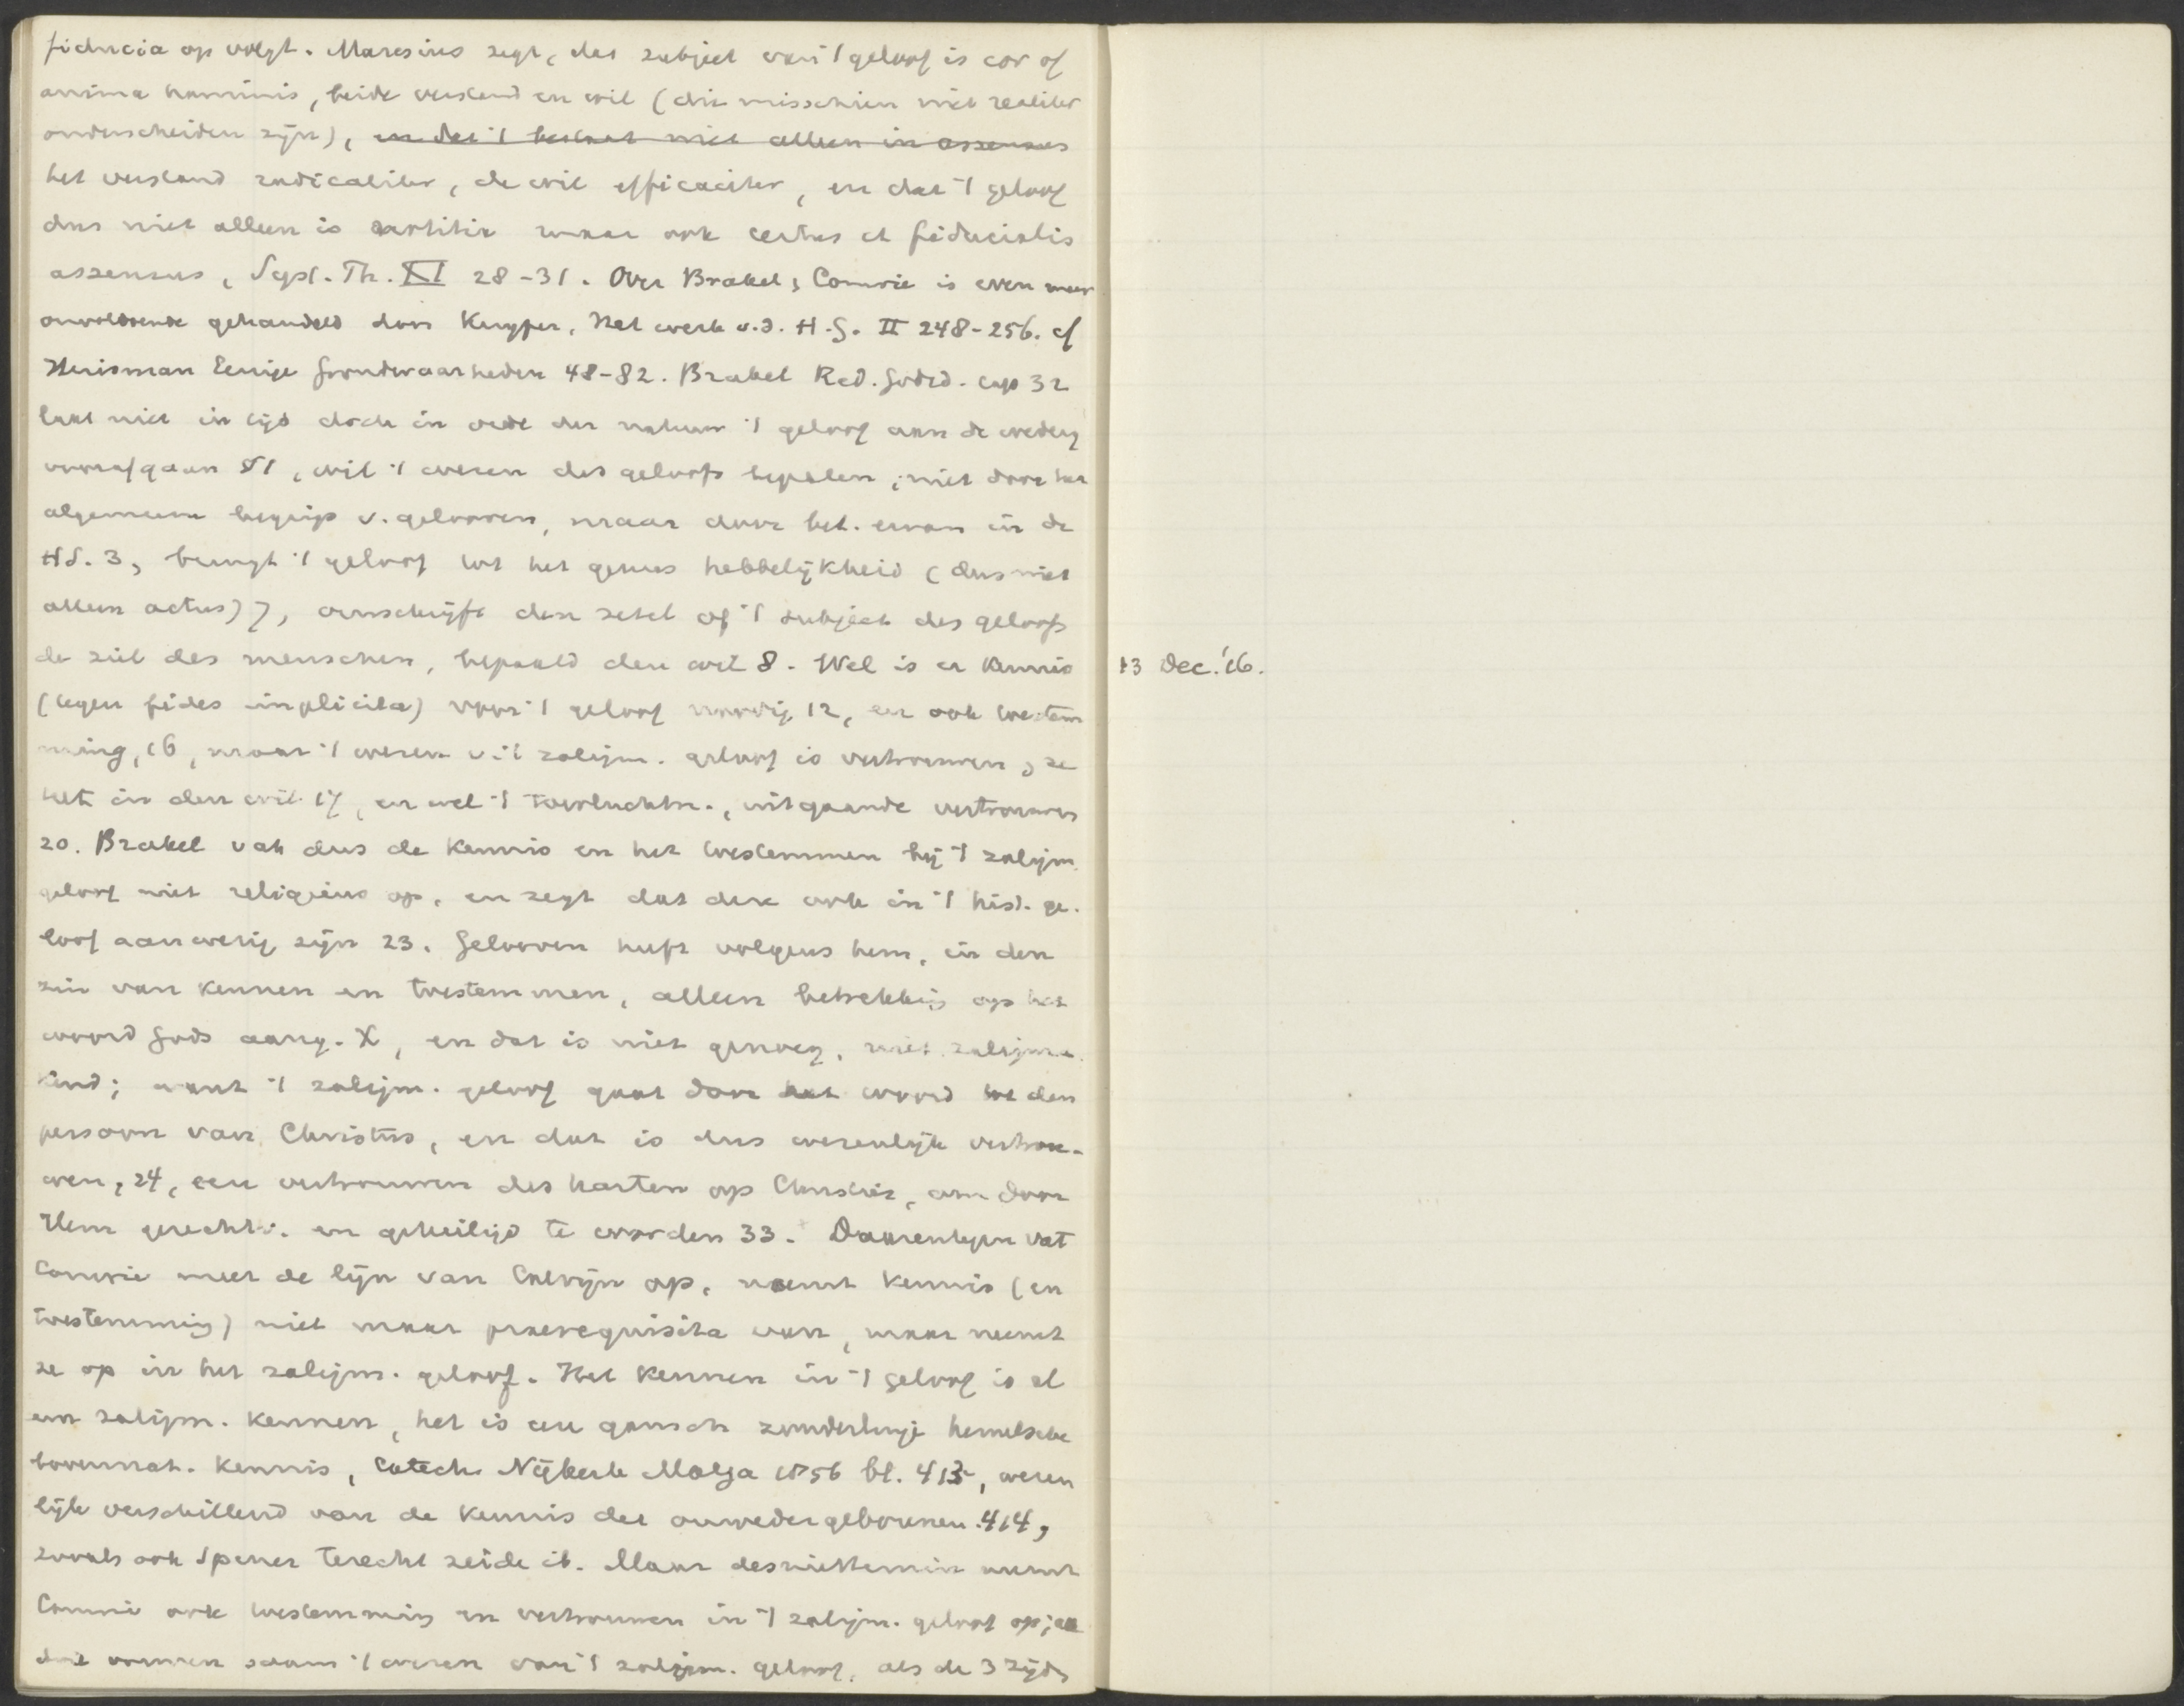 fiducia op volgt. Maresius zegt, dat subject van 't geloof is cor of
anima hominis, beide verstand en wil (die misschien niet realiter
onderscheiden zijn), en dat 't bestaat niet alleen in assensus
het verstand radicaliter, de wil efficaciter, en dat 't geloof
dus niet alleen is notitie maar ook certus et fiducialis
assensus, Syst. Th. XI 28-31. Over Brakel, Comrie is even meer
onvoldoende gehandeld door Kuyper, Het werk v.d. H.G. II 248-256. cf
Huisman Eenige Grondwaarheden 48-82. Brakel Red. Godsd. cap 32
laat niet in tijd doch in orde der natuur 't geloof aan de wederg
voorafgaan §1, wil 't wezen des geloofs bepalen, niet door het
algemeene begrip v. gelooven, maar door bet. ervan in de
HS. 3, brengt 't geloof tot het genus hebbelijkheid (dus niet
alleen actus) 7, omschrijft den zetel of 't subject des geloofs
de ziel des menschen, bepaald den wil 8. Wel is er kennis
(tegen fides implicita) voor 't geloof noodig 12, en ook toestem
ming, 16, maar 't wezen v. 't zaligm. geloof is vertrouwen, ze
telt in den wil 17, en wel 't toevluchtn., uitgaande vertrouwen
20. Brakel vat dus de kennis en het toestemmen bij 't zaligm.
geloof niet religieus op, en zegt dat deze ook in 't hist. ge.
loof aanwezig zijn 23. Gelooven heeft volgens hem, in den
zin van kennen en toestemmen, alleen betrekking op het
woord Gods aang. X, en dat is niet genoeg, niet zaligma.
kend; want 't zaligm. geloof gaat door het woord tot den
persoon van Christus, en dat is dus wezenlijk vertrou-
wen, 24, een vertrouwen des harten op Christus, om door
Hem gerechtv. en geheiligd te worden 33. Daarentegen vat
Comrie meer de lijn van Calvijn op, noemt kennis (en
toestemming) niet maar praerequisita van, maar neemt
ze op in het zaligm. geloof. Het kennen in 't geloof is al
een zaligm. kennen, het is eene gansch zonderlinge hemelsche
bovennat. kennis, Catech. Nijkerk Malga 1856 bl. 413, wezen
lijk verschillend van de kennis der onwedergeborenen 414,
zooals ook Spener terecht zeide ib. Maar desniettemin neemt
Comrie ook toestemming en vertrouwen in 't zaligm. geloof op; alle
drie vormen saam 't wezen van 't zaligm. geloof, als de 3 zijden
13 Dec. '16.